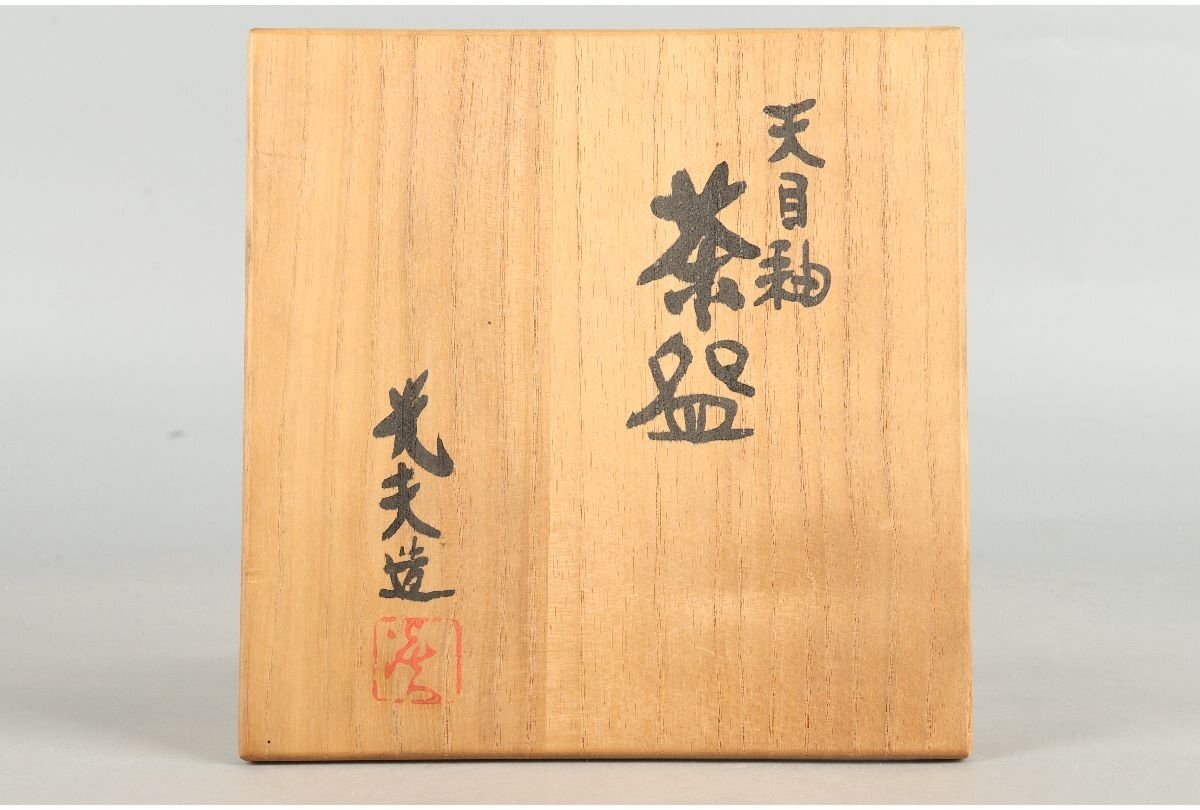 天目釉
茶盌
光夫造